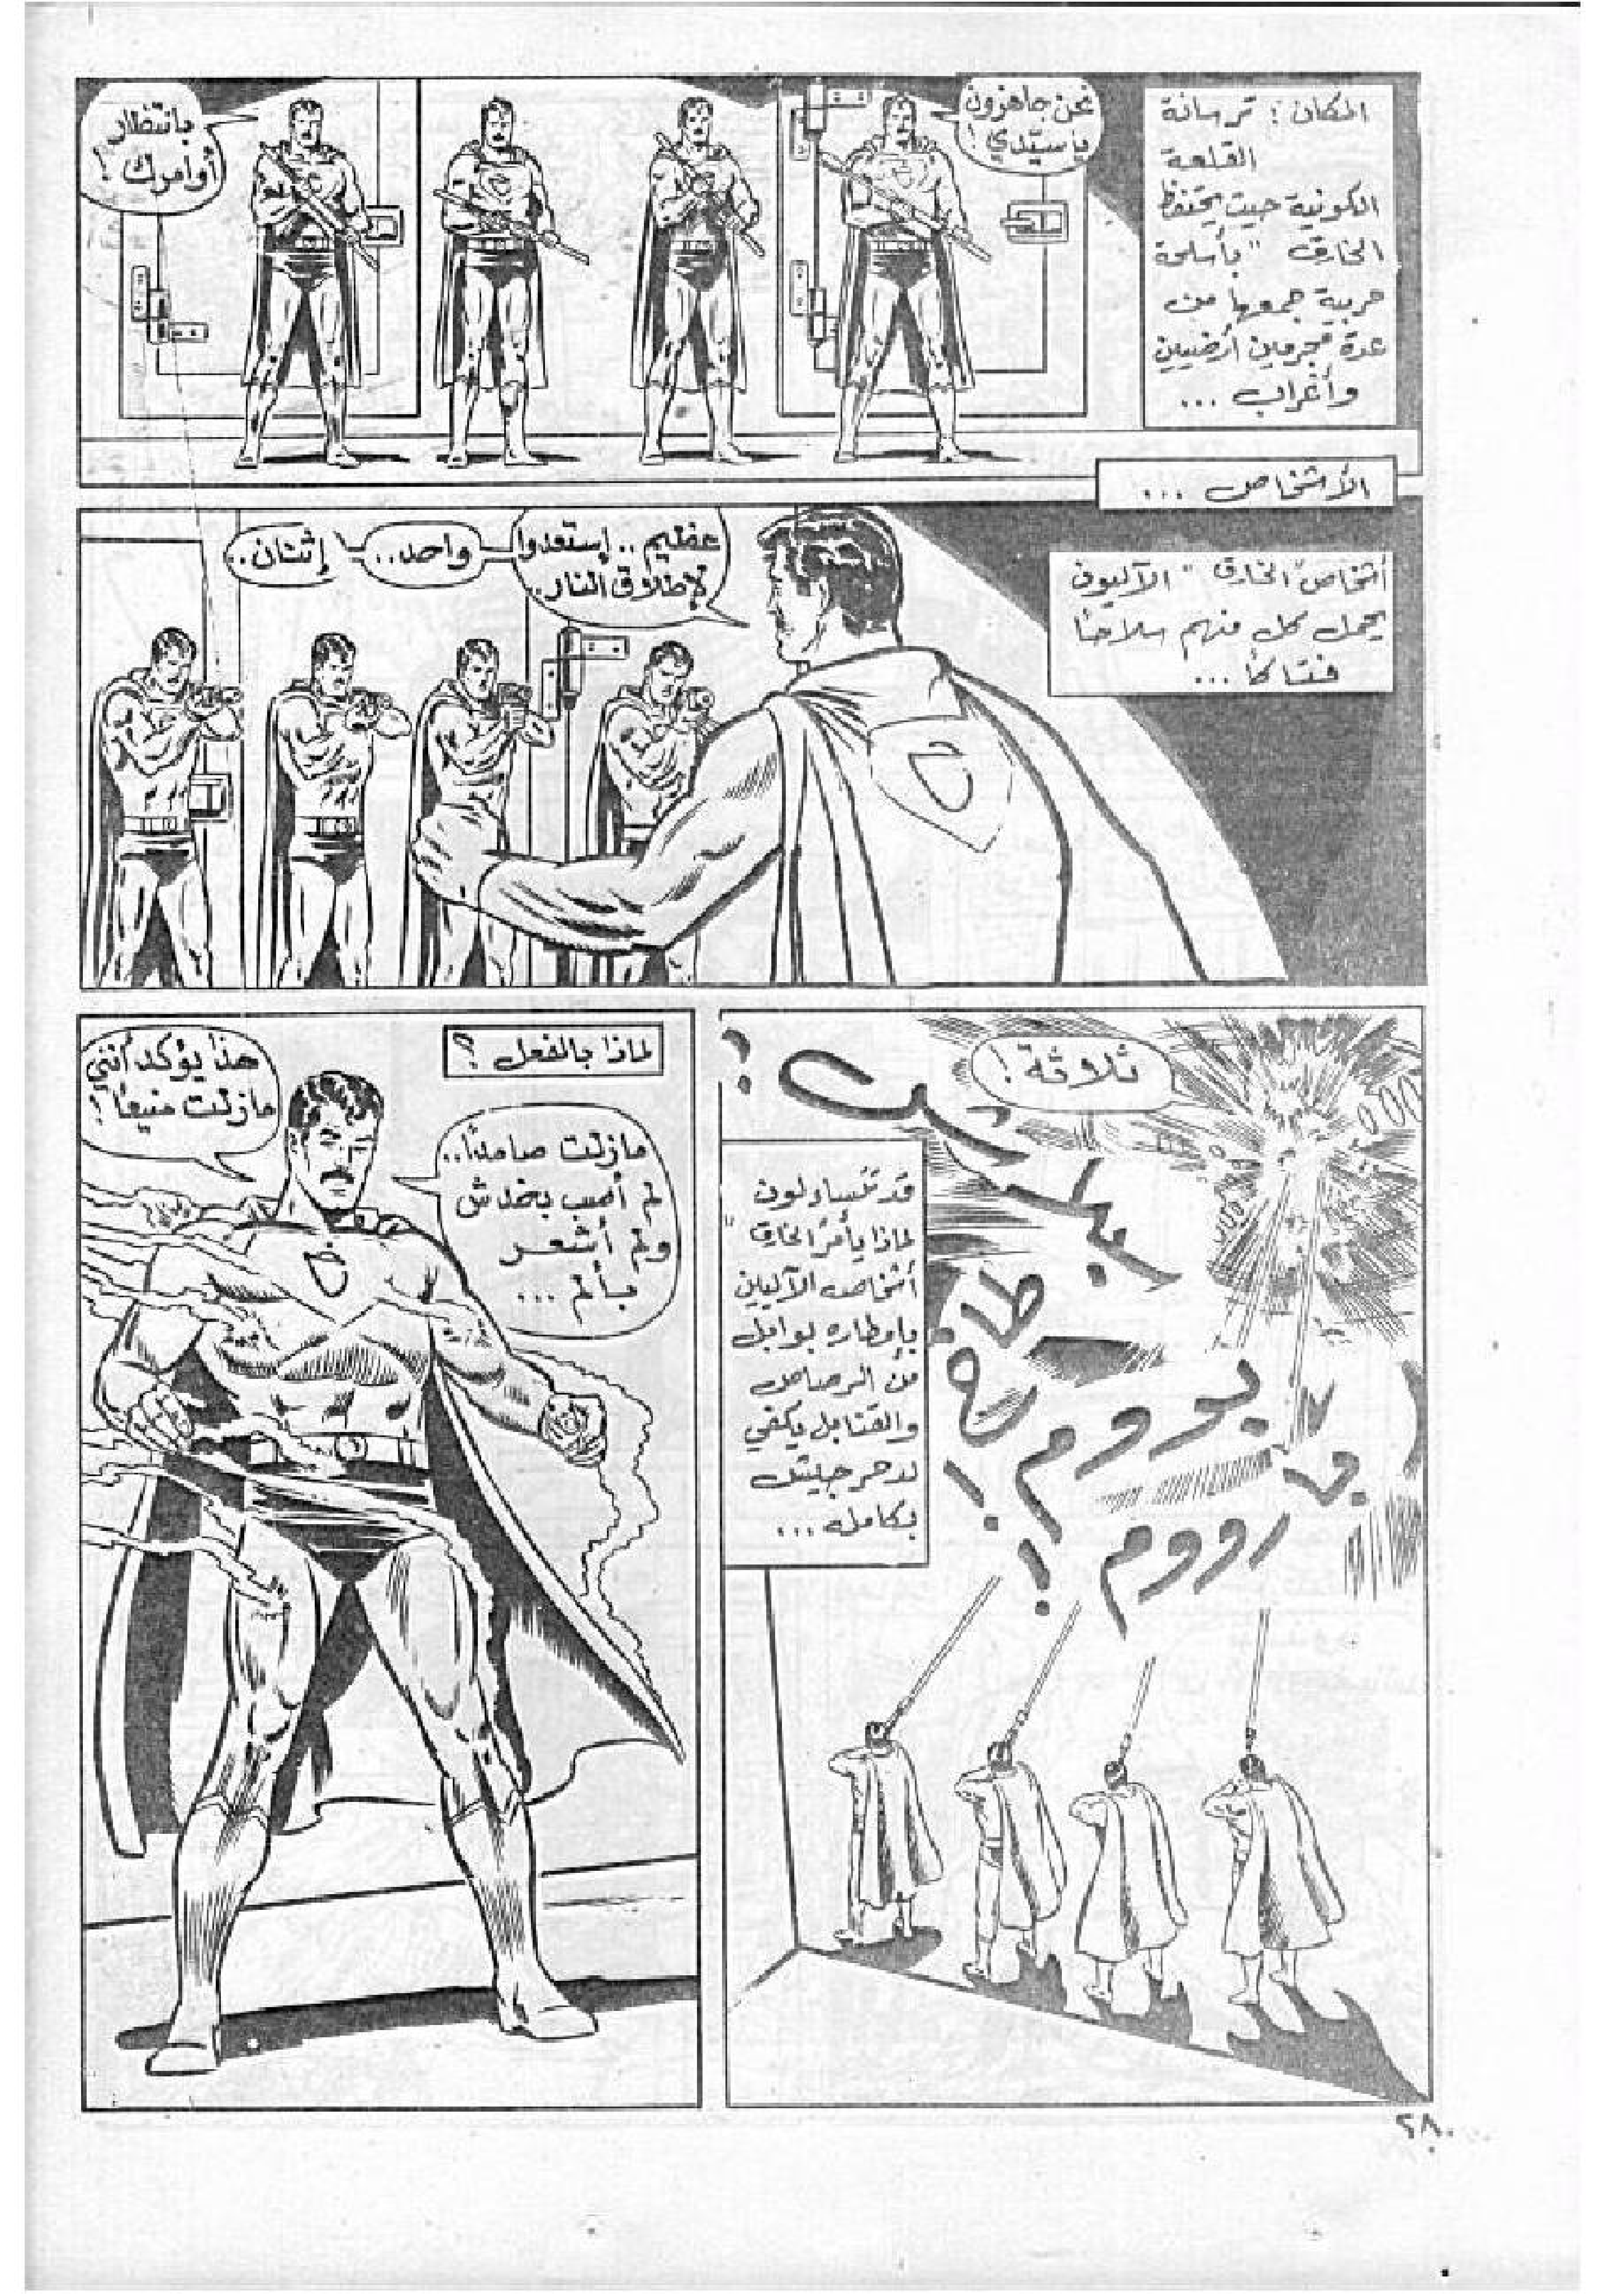 المكان : ترسانة
القلعة
الكونية حيث يحتفظ
الخارق " بأسلحة
حربية جمعها من
عدة مجرمين أرضيين
وأغراب ...
نحن جاهزون
يا سيّدي !
بانتظار
أوامرك !
الأشخاص ...
أشخاص "الخارق" الآليون
يحمل كل منهم سلاحًا
فتاكًا ...
عظيم .. إستعدوا
لإطلاق النار..
واحد..
إثنان..
ثلاثة !
بوووم !
رووم !
قد تتساءلون
لماذا يأمر الخارق "
أشخاصه الآليين
بإمطاره بوابل
من الرصاص
والقنابل يكفي
لدحر جيش
بكامله ...
لماذا بالفعل ؟
مازلت صامدًا..
لم أصب بخدش
ولم أشعر
بألم ...
هذا يؤكد أنني
مازلت منيعًا !
٢٨٠